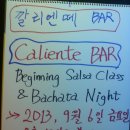 깔리엔떼 BAR
Caliente BAR
Beginning Salsa Class
& Bachata Night
→ 2013, 9월 6일 금요일